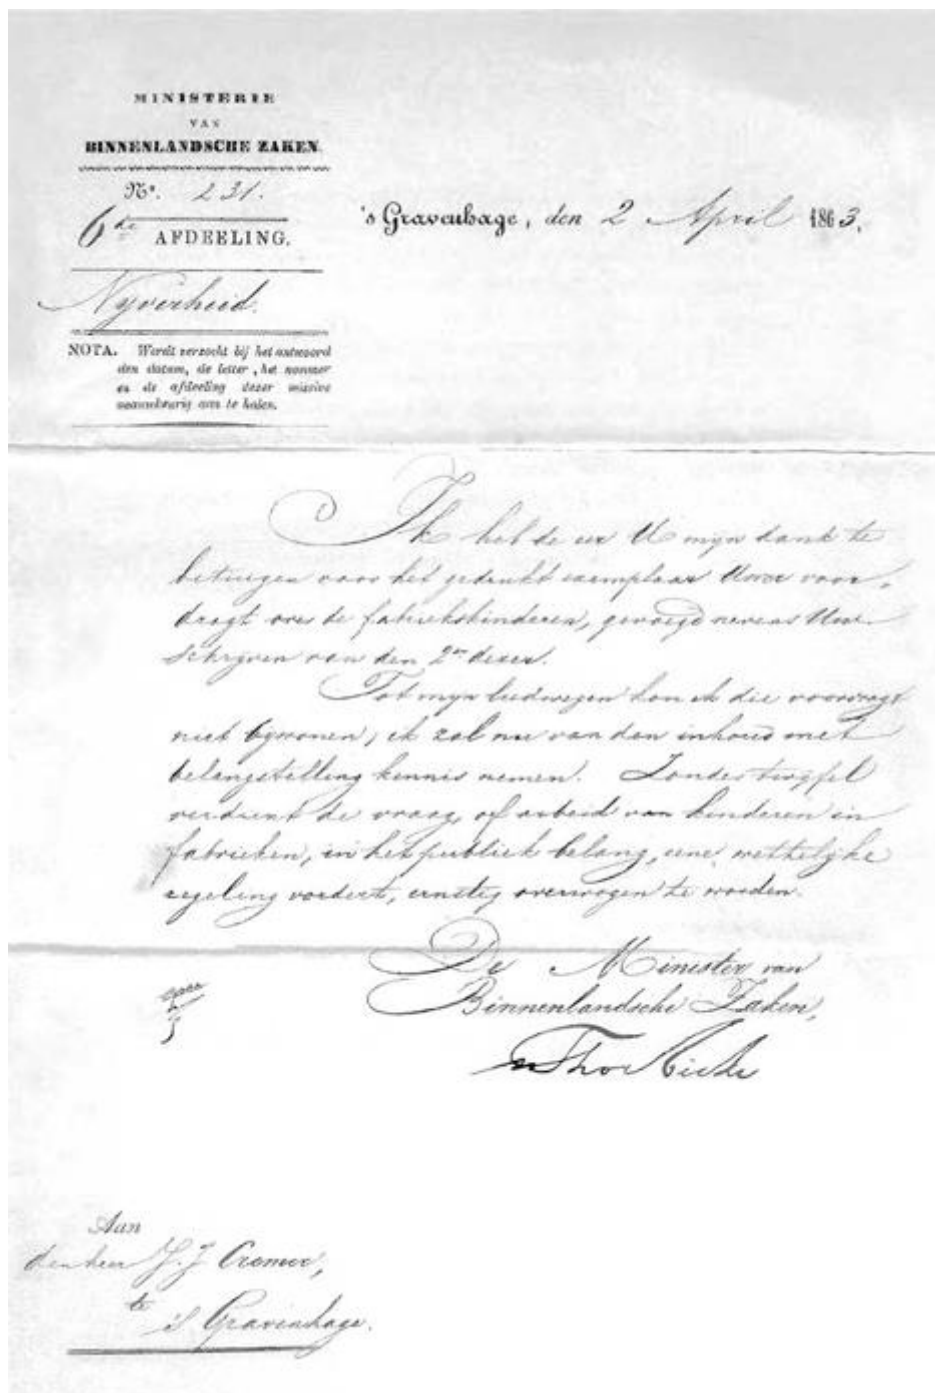 MINISTERIE
VAN
BINNENLANDSCHE ZAKEN.
No. 231.
6de AFDEELING.
Nijverheid.
NOTA. Wordt verzocht bij het antwoord
den datum, de letter, het nommer
en de afdeeling dezer missive
naauwkeurig aan te halen.
's Gravenhage, den 2 April 1863.
Ik heb de eer U mijn dank te
betuigen voor het gedrukt exemplaar Uwer voor-
dragt over de fabriekskinderen, gevoegd nevens Uw
schrijven van den 2en dezer.
Tot mijn leedwezen kon ik die voordragt
niet bijwonen; ik zal nu van den inhoud met
belangstelling kennis nemen. Zonder twijfel
verdient de vraag, of arbeid van kinderen in
fabrieken, in het publiek belang, eene wettelijke
regeling vordert, ernstig overwogen te worden.
De Minister van
Binnenlandsche Zaken,
Thorbecke
Aan
den heer J. J. Cremer,
te
's Gravenhage.